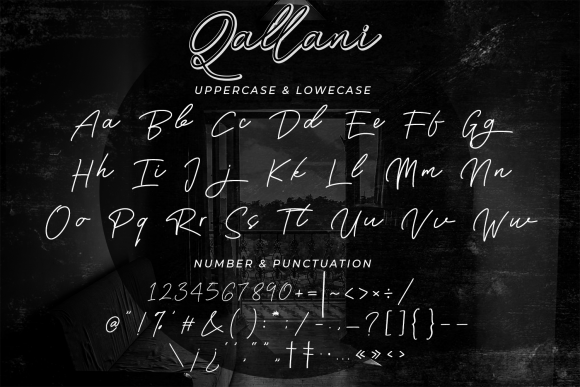 Qallani
UPPERCASE & LOWECASE
Aa Bb Cc Dd Ee Ff Gg
Hh Ii Jj Kk Ll Mm Nn
Oo Pq Rr Ss Tt Uu Vv Ww
NUMBER & PUNCTUATION
1234567890+=|~<>×÷/
@"!%'#&():*:/-.,_?[]{}--
\¡¿‘’“”„†‡·•…«»‹›